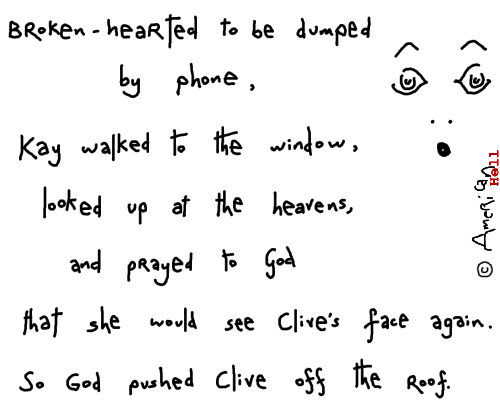 Broken-hearted to be dumped
by phone,
Kay walked to the window,
looked up at the heavens,
and prayed to God
that she would see Clive's face again.
So God pushed Clive off the roof.
© American Hell